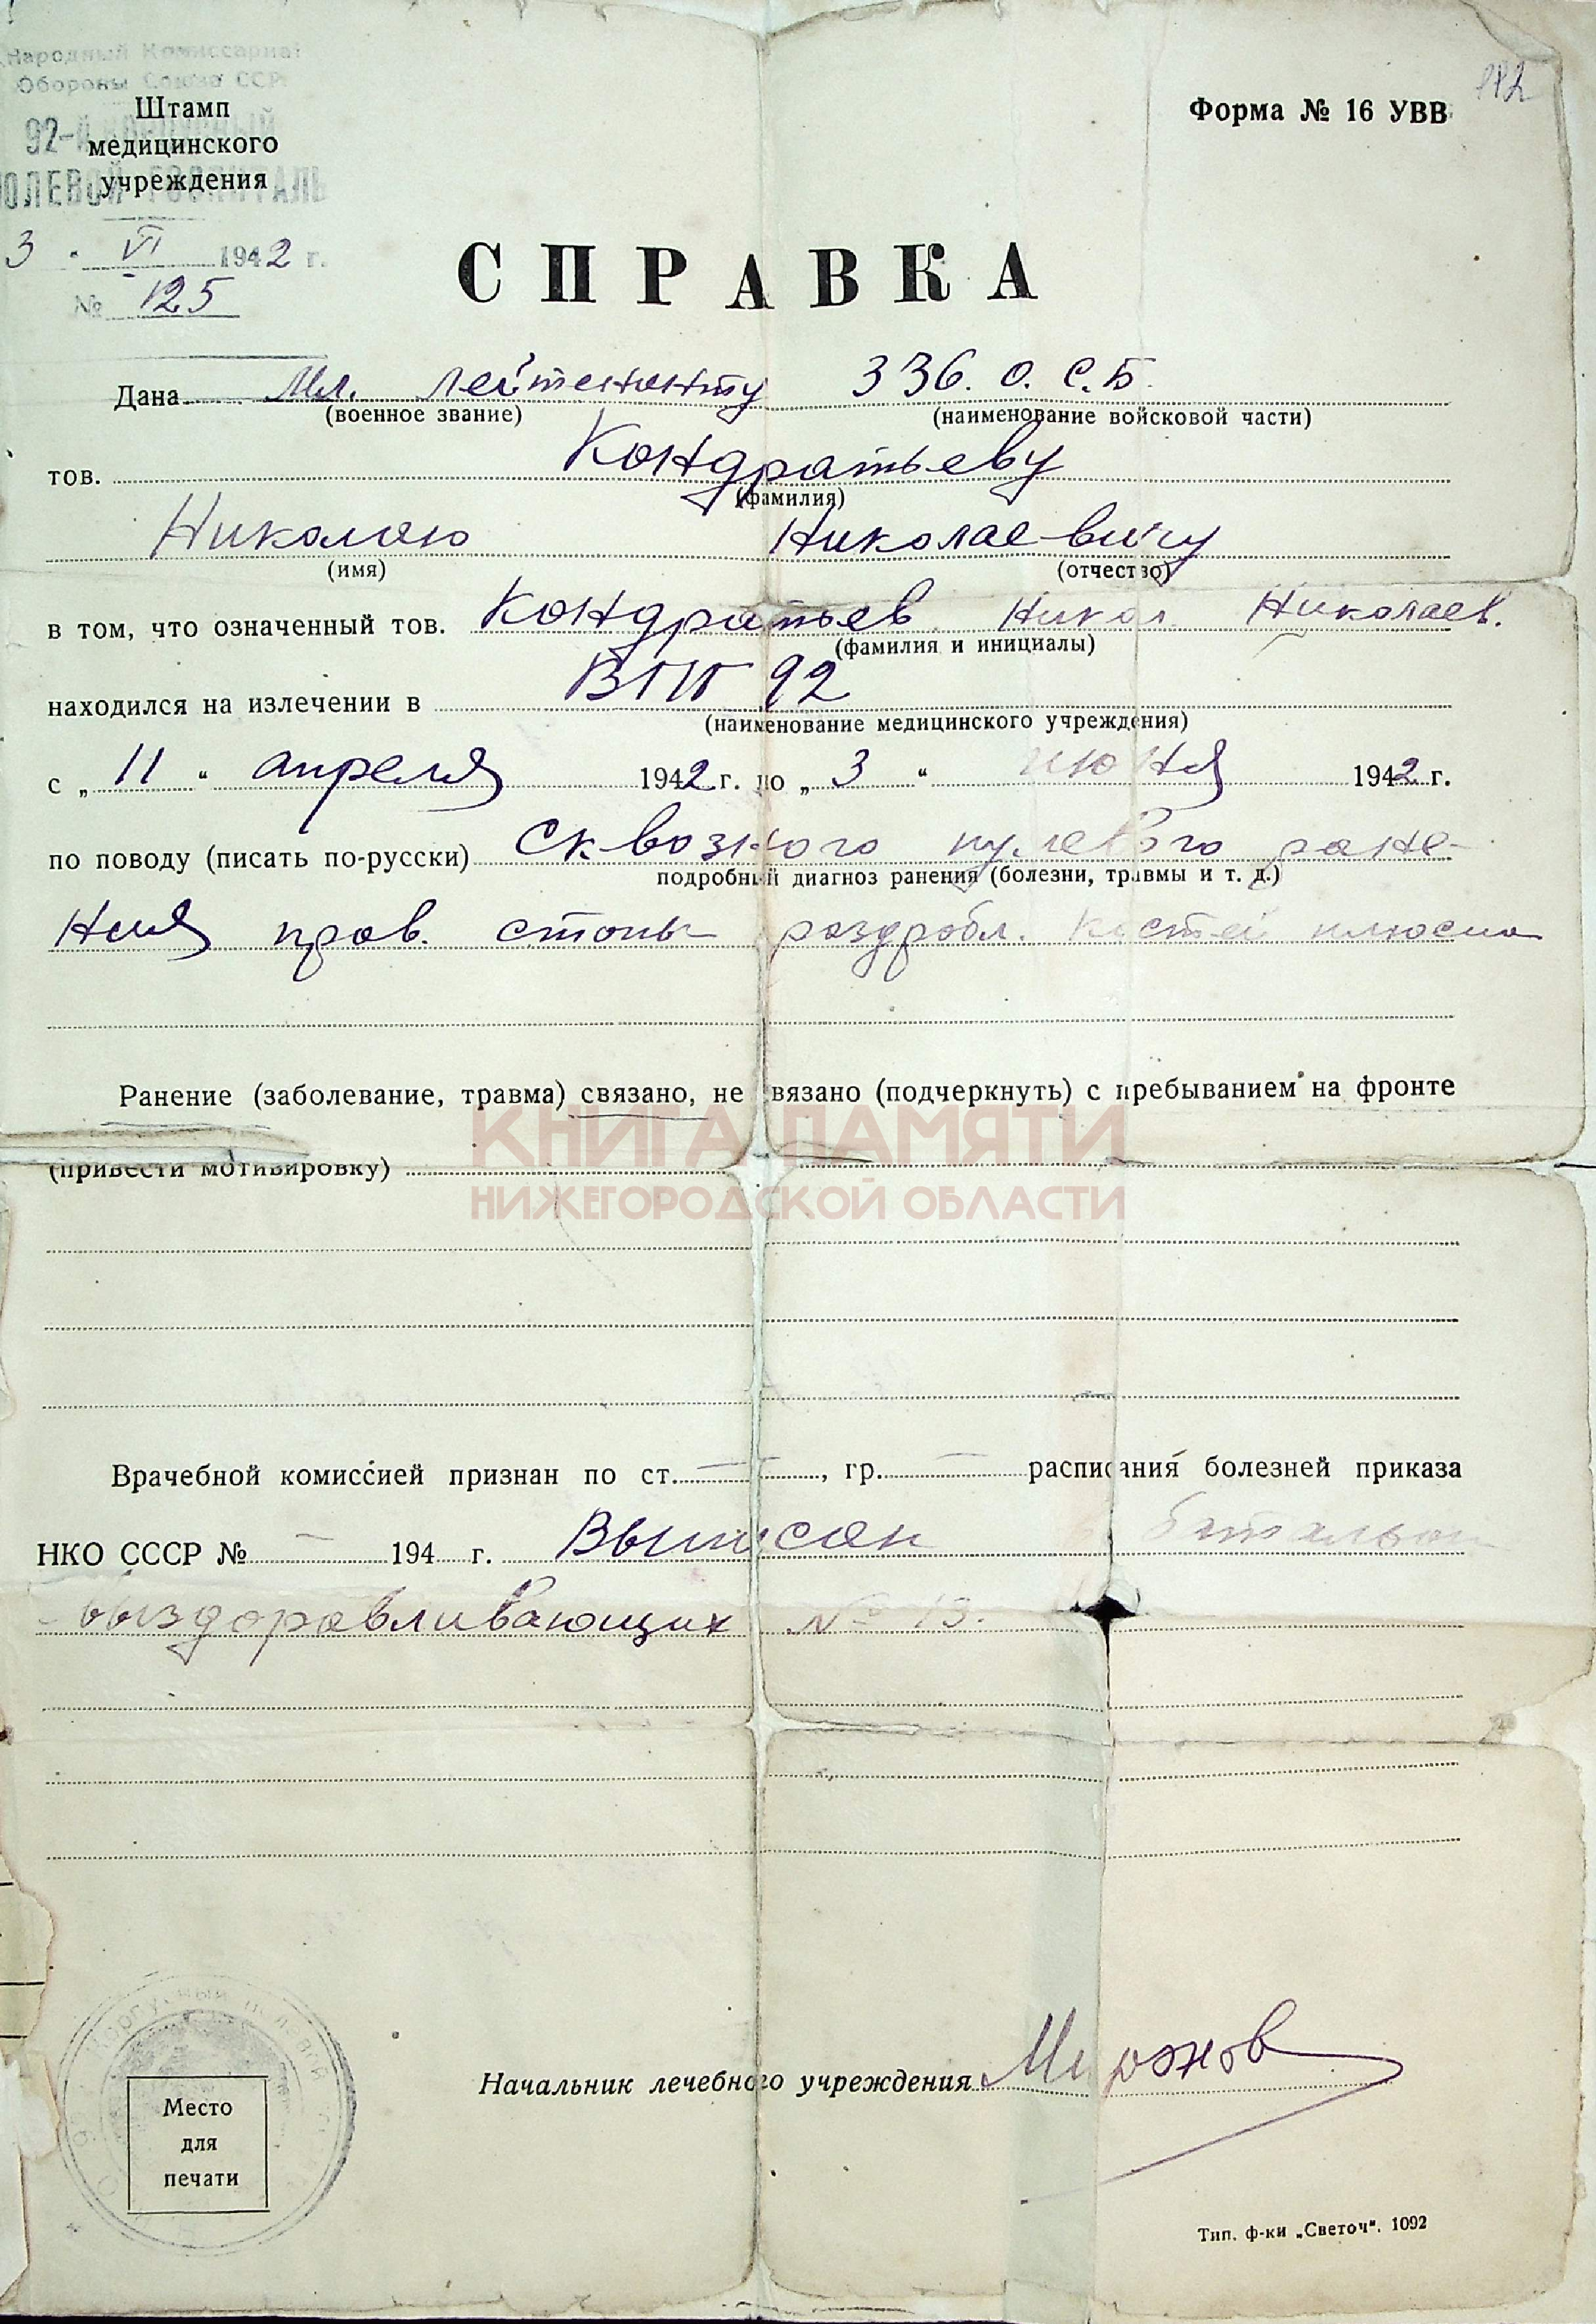 Народный Комиссариат
Обороны Союза ССР
92-й
ПОЛЕВОЙ ГОСПИТАЛЬ
Штамп
медицинского
учреждения
3 " VI 1942 г.
№ 125
Форма № 16 УВВ
112
СПРАВКА
Дана Мл. лейтенанту 336. О. С. Б.
(военное звание) (наименование войсковой части)
тов. Кондратьеву
(фамилия)
Николаю Николаевичу
(имя) (отчество)
в том, что означенный тов. Кондратьев Никол Николаев.
(фамилия и инициалы)
находился на излечении в 92
(наименование медицинского учреждения)
с „ 11 “ апреля 1942 г. по „ 3 “ июня 1942 г.
по поводу (писать по-русски) Сквозного пулевого ране-
подробный диагноз ранения (болезни, травмы и т. д.)
ния прав. стопы раздробл. костей плюсны
Ранение (заболевание, травма) связано, не связано (подчеркнуть) с пребыванием на фронте
КНИГА ПАМЯТИ
(привести мотивировку)
НИЖЕГОРОДСКОЙ ОБЛАСТИ
Врачебной комиссией признан по ст. — , гр. — расписания болезней приказа
НКО СССР № — 194 г. Выписан в батальон
выздоравливающих № 13.
Начальник лечебного учреждения Миронов
Место
для
печати
Тип. ф-ки „Светоч“. 1092